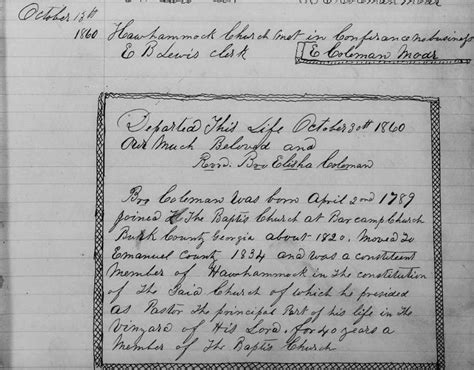 October 13th
1860 Hawhammock Church met in Conferance no business
E B Lewis clerk E Coleman Modr
Departed This Life October 30th 1860
Our Much Beloved and
Revd. Bro Elisha Coleman
Bro Coleman was born April 2nd 1789
joined The Baptis Church at Barcamp Church
Burk County Georgia about 1820. Moved To
Emanuel County 1834 and was a constituent
Member of Hawhammock in the constitution
of The Said Church of which he presided
as Pastor The principal Part of his life in the
Vinyard of His Lord. for 40 years a
Member of The Baptis Church